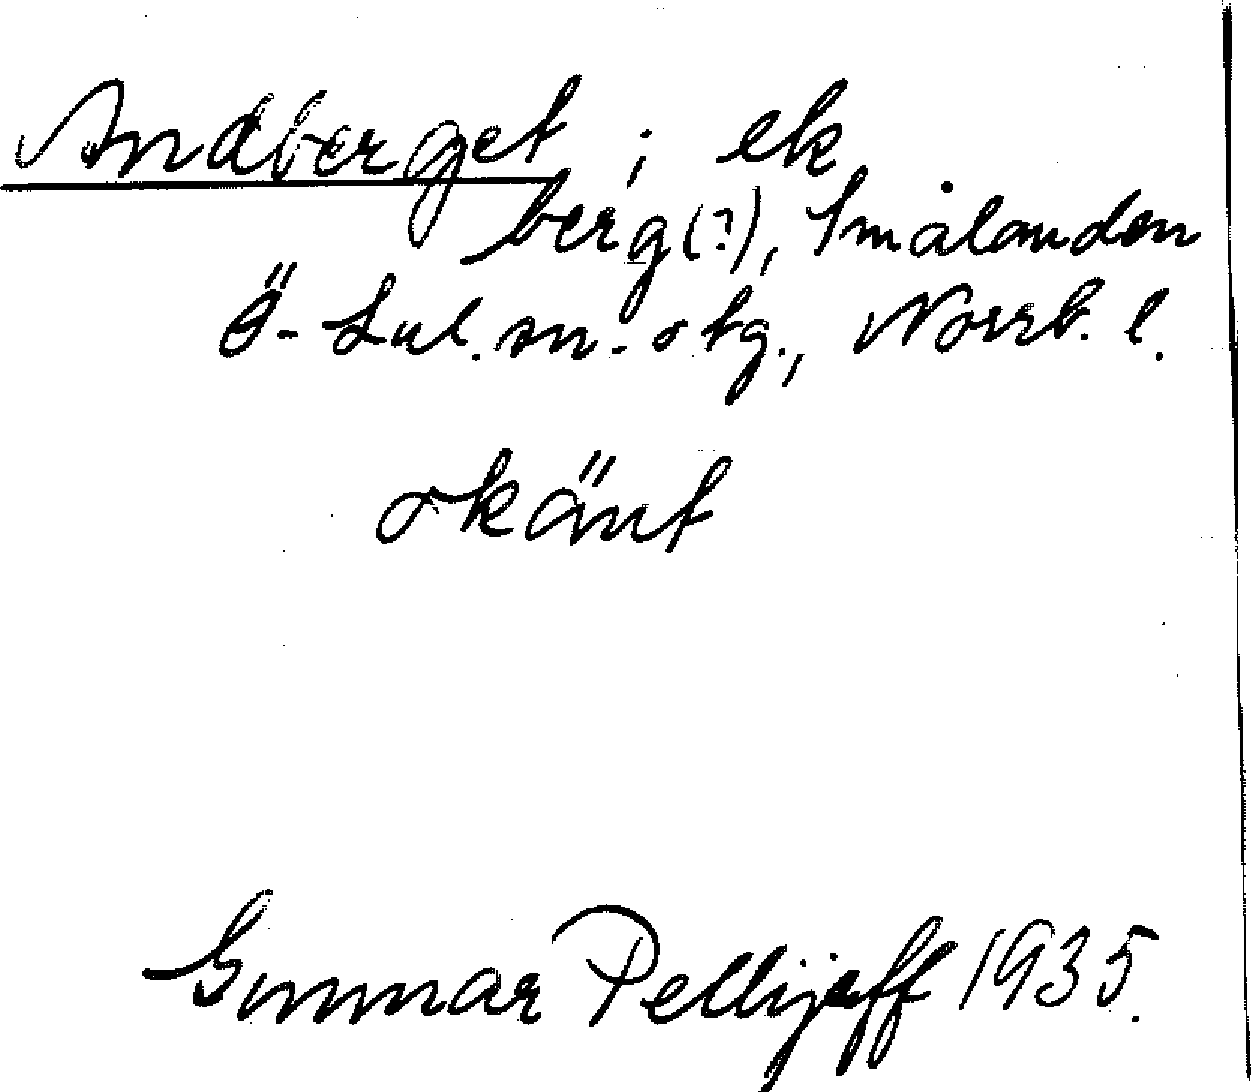 Andberget ; ek
berg (?), Smålanden
Ö-Lul. sn. o tg., Norrb. l.
okänt
Gunnar Pellijeff 1935.